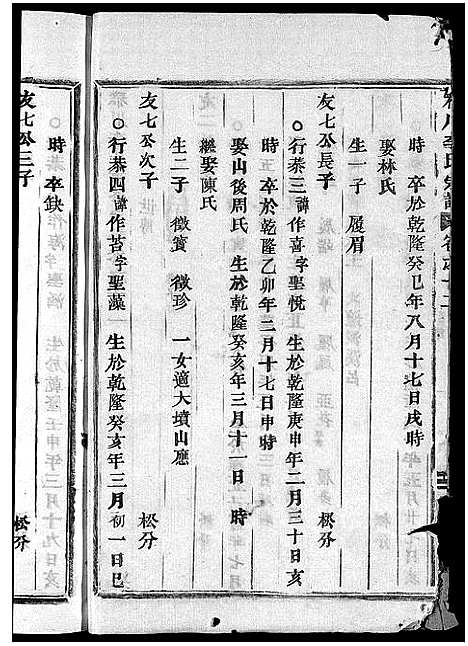 時 卒於乾隆癸巳年八月十七日戌時
娶林氏
生一子 履眉
友七公長子 松分
○行恭三諱作喜字聖悅 生於乾隆庚申年二月三十日亥
時 卒於乾隆乙卯年三月十七日申時
娶山後周氏 生於乾隆癸亥年三月十一日 時
生二子 徵賓 徵珍 一女適大墳山應
繼娶陳氏
友七公次子 松分
○行恭四諱作苫字聖藻 生於乾隆癸亥年三月初一日巳
時 卒缺
友七公三子 松分